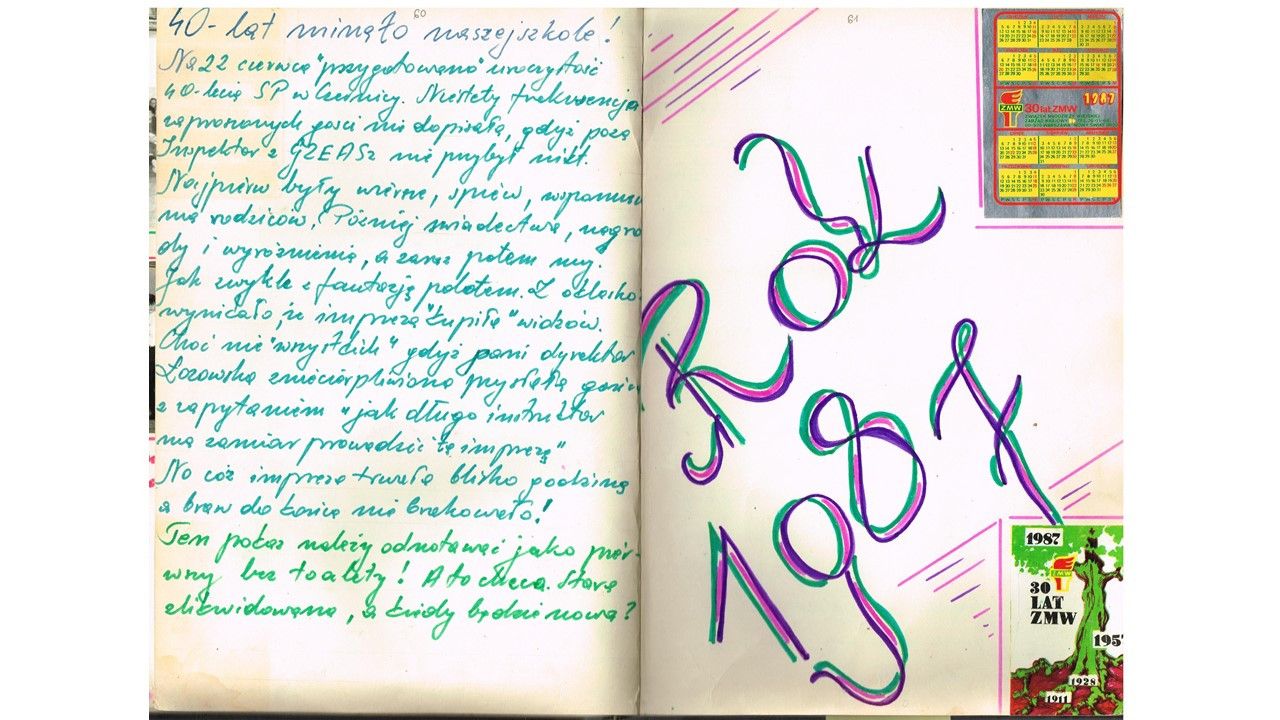 60
40-lat minęło naszej szkole!
Na 22 czerwca "przygotowano" uroczystość
40-lecia SP w Czernicy. Niestety frekwencja
zaproszonych gości nie dopisała, gdyż poza
Inspektor z GZEASz nie przybył nikt.
Najpierw były wiersze, śpiew, wspomnie
nia rodziców. Później świadectwa, nagro
dy i wyróżnienia, a zaraz potem my.
Jak zwykle z fantazją polotem. Z oklasków
wynikało, że impreza "kupiła" widzów.
Choć nie "wszystkich" gdyż pani dyrektor
zniecierpliwiona przysłała gońca
z zapytaniem "jak długo instruktor
ma zamiar prowadzić tę imprezę"
No cóż impreza trwała blisko godzinę
a braw do końca nie brakowało!
Ten pokaz należy odnotować jako pier-
wszy bez toalety! A to checa. Stara
zlikwidowana, a kiedy będzie nowa?
61
ROK
1987
1987
ZMW
30 lat ZMW
ZWIĄZEK MŁODZIEŻY WIEJSKIEJ
ZARZĄD KRAJOWY
1987
ZMW
30
LAT
ZMW
1957
1928
1911